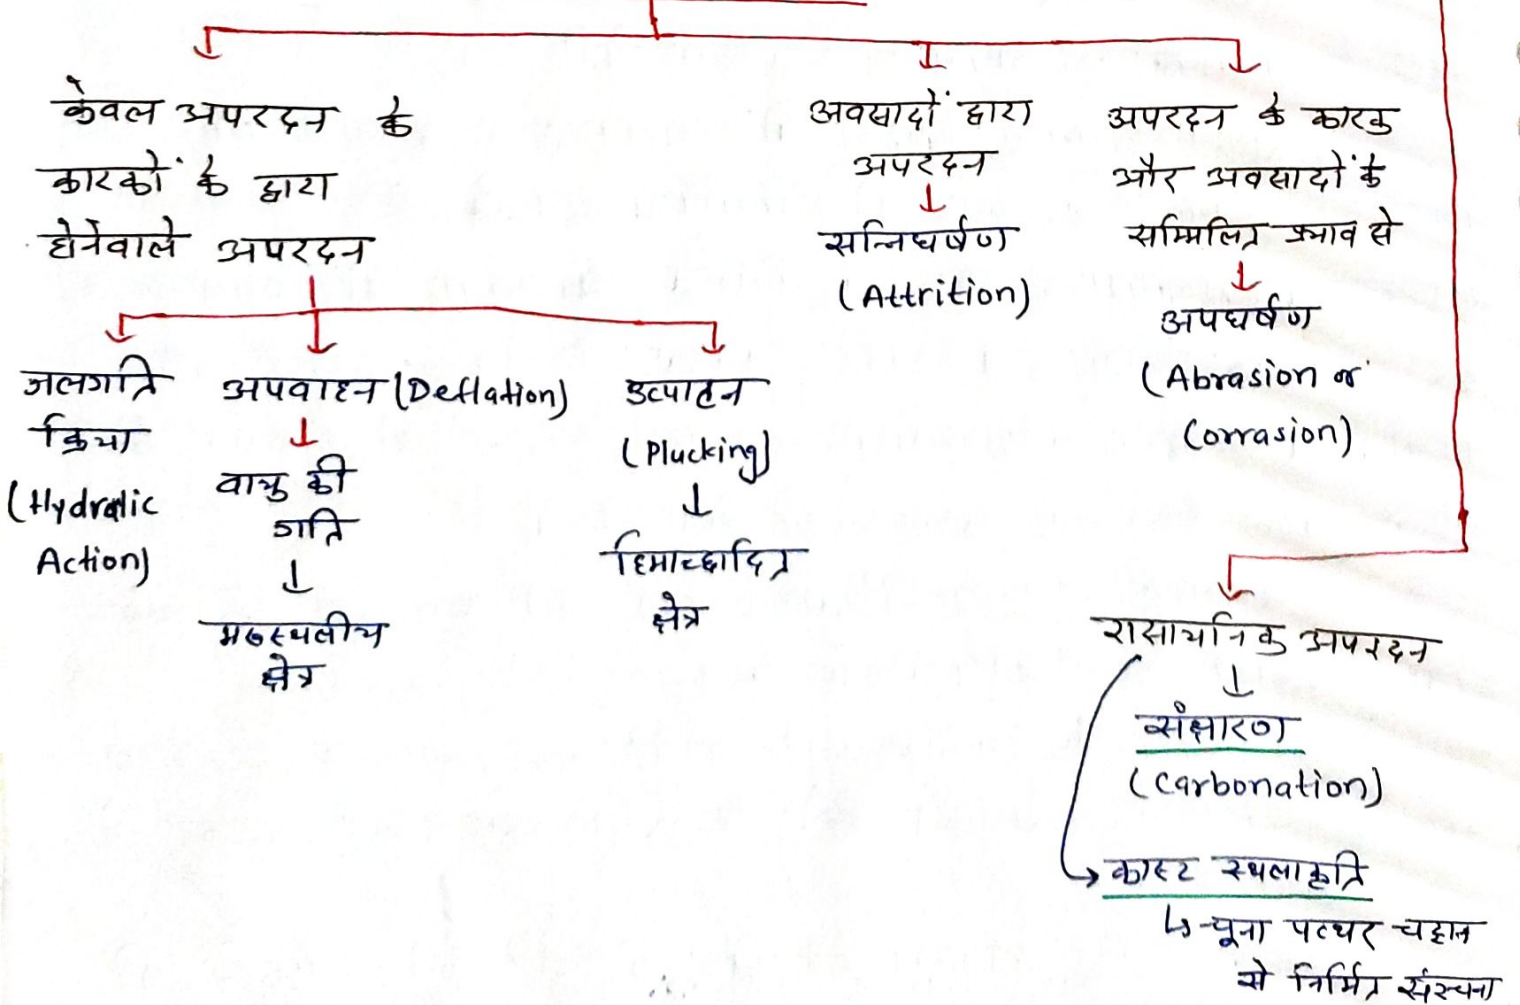 केवल अपरदन के
कारकों के द्वारा
होनेवाले अपरदन
जलगति
क्रिया
(Hydralic
Action)
अपवाहन (Deflation)
वायु की
गति
मरुस्थलीय
क्षेत्र
उत्पाटन
(Plucking)
हिमाच्छादित
क्षेत्र
अवसादों द्वारा
अपरदन
सन्निघर्षण
(Attrition)
अपरदन के कारक
और अवसादों के
सम्मिलित प्रभाव से
अपघर्षण
(Abrasion or
Corrasion)
रासायनिक अपरदन
संक्षारण
(Carbonation)
कार्स्ट स्थलाकृति
चूना पत्थर चट्टान
से निर्मित संरचना